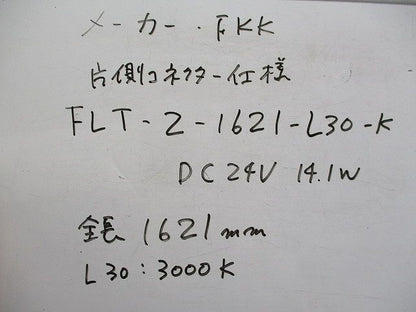 メーカー・FKK
片側コネクター仕様
FLT-2-1621-L30-K
DC24V 14.1W
全長 1621mm
L30:3000K